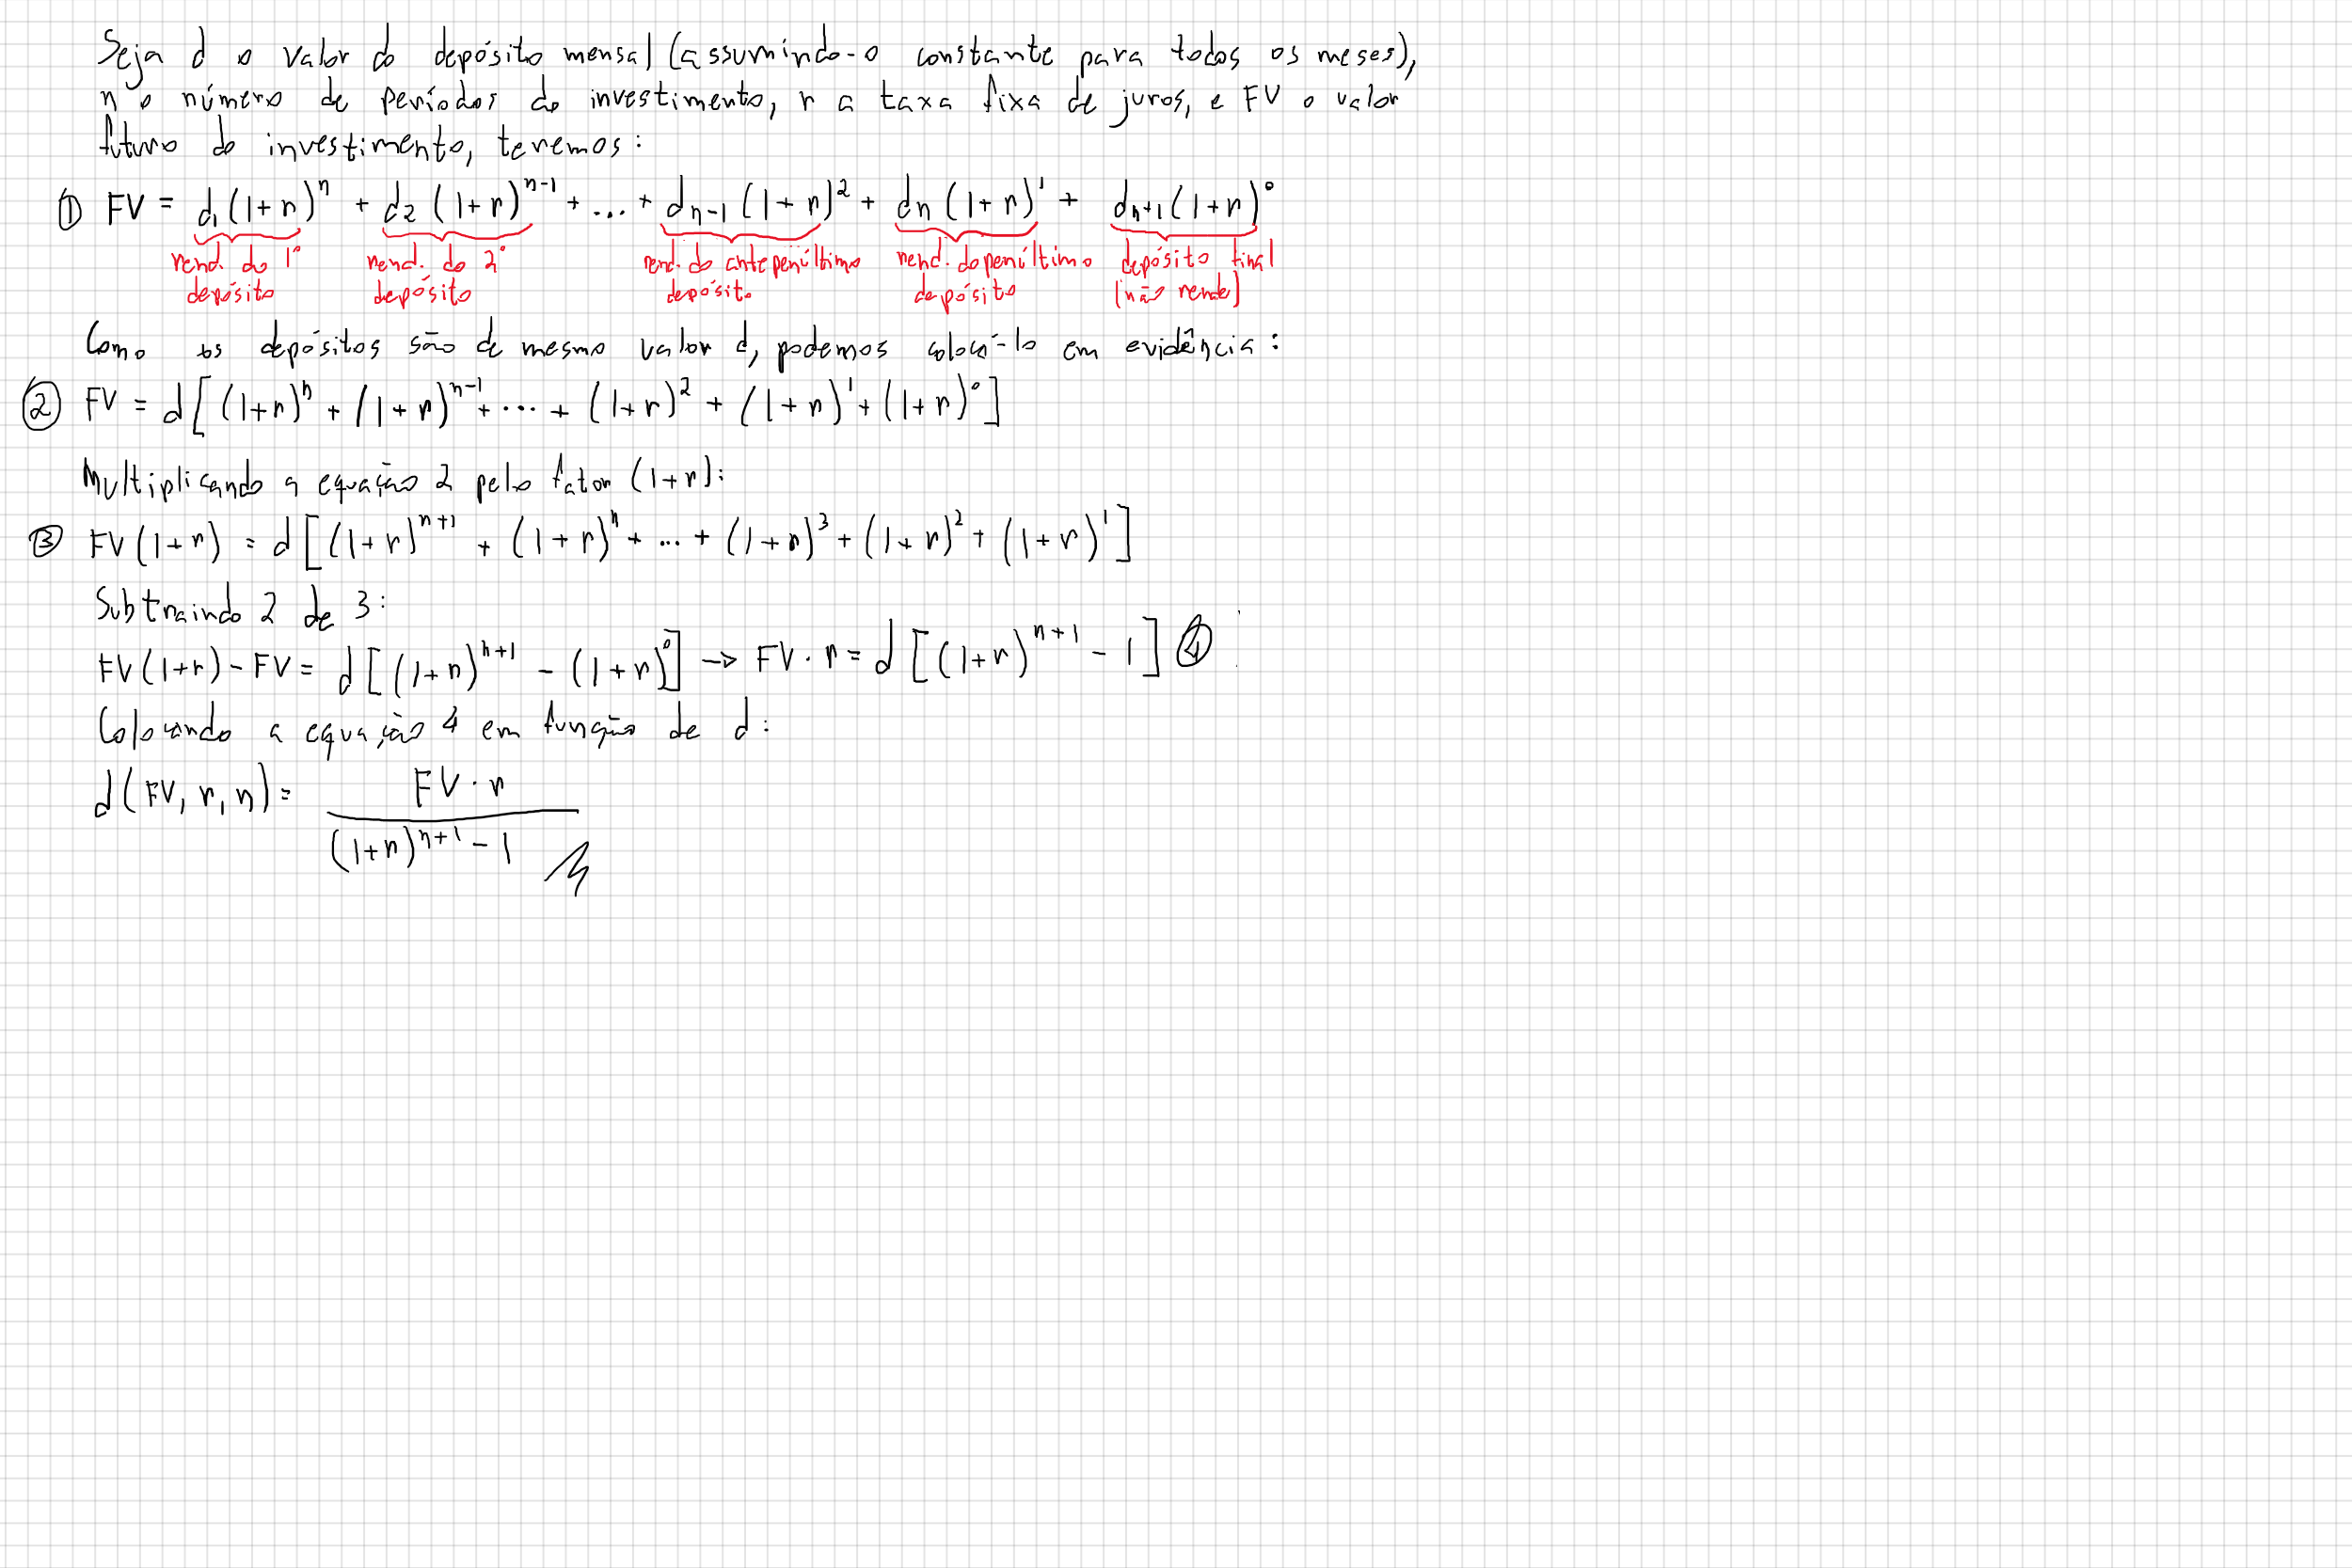 Seja d o valor do depósito mensal (assumindo-o constante para todos os meses),
n o número de períodos do investimento, r a taxa fixa de juros, e FV o valor
futuro do investimento, teremos:
① FV = d₁(1+r)ⁿ + d₂(1+r)ⁿ⁻¹ + ... + dₙ₋₁(1+r)² + dₙ(1+r)¹ + dₙ₊₁(1+r)⁰
rend. do 1º depósito
rend. do 2º depósito
rend. do antepenúltimo depósito
rend. do penúltimo depósito
depósito final (não rende)
Como os depósitos são de mesmo valor d, podemos colocá-lo em evidência:
② FV = d[(1+r)ⁿ + (1+r)ⁿ⁻¹ + ... + (1+r)² + (1+r)¹ + (1+r)⁰]
Multiplicando a equação 2 pelo fator (1+r):
③ FV(1+r) = d[(1+r)ⁿ⁺¹ + (1+r)ⁿ + ... + (1+r)³ + (1+r)² + (1+r)¹]
Subtraindo 2 de 3:
FV(1+r) - FV = d[(1+r)ⁿ⁺¹ - (1+r)⁰] → FV · r = d[(1+r)ⁿ⁺¹ - 1] ④
Colocando a equação 4 em função de d:
d(FV, r, n) = FV · r
(1+r)ⁿ⁺¹ - 1